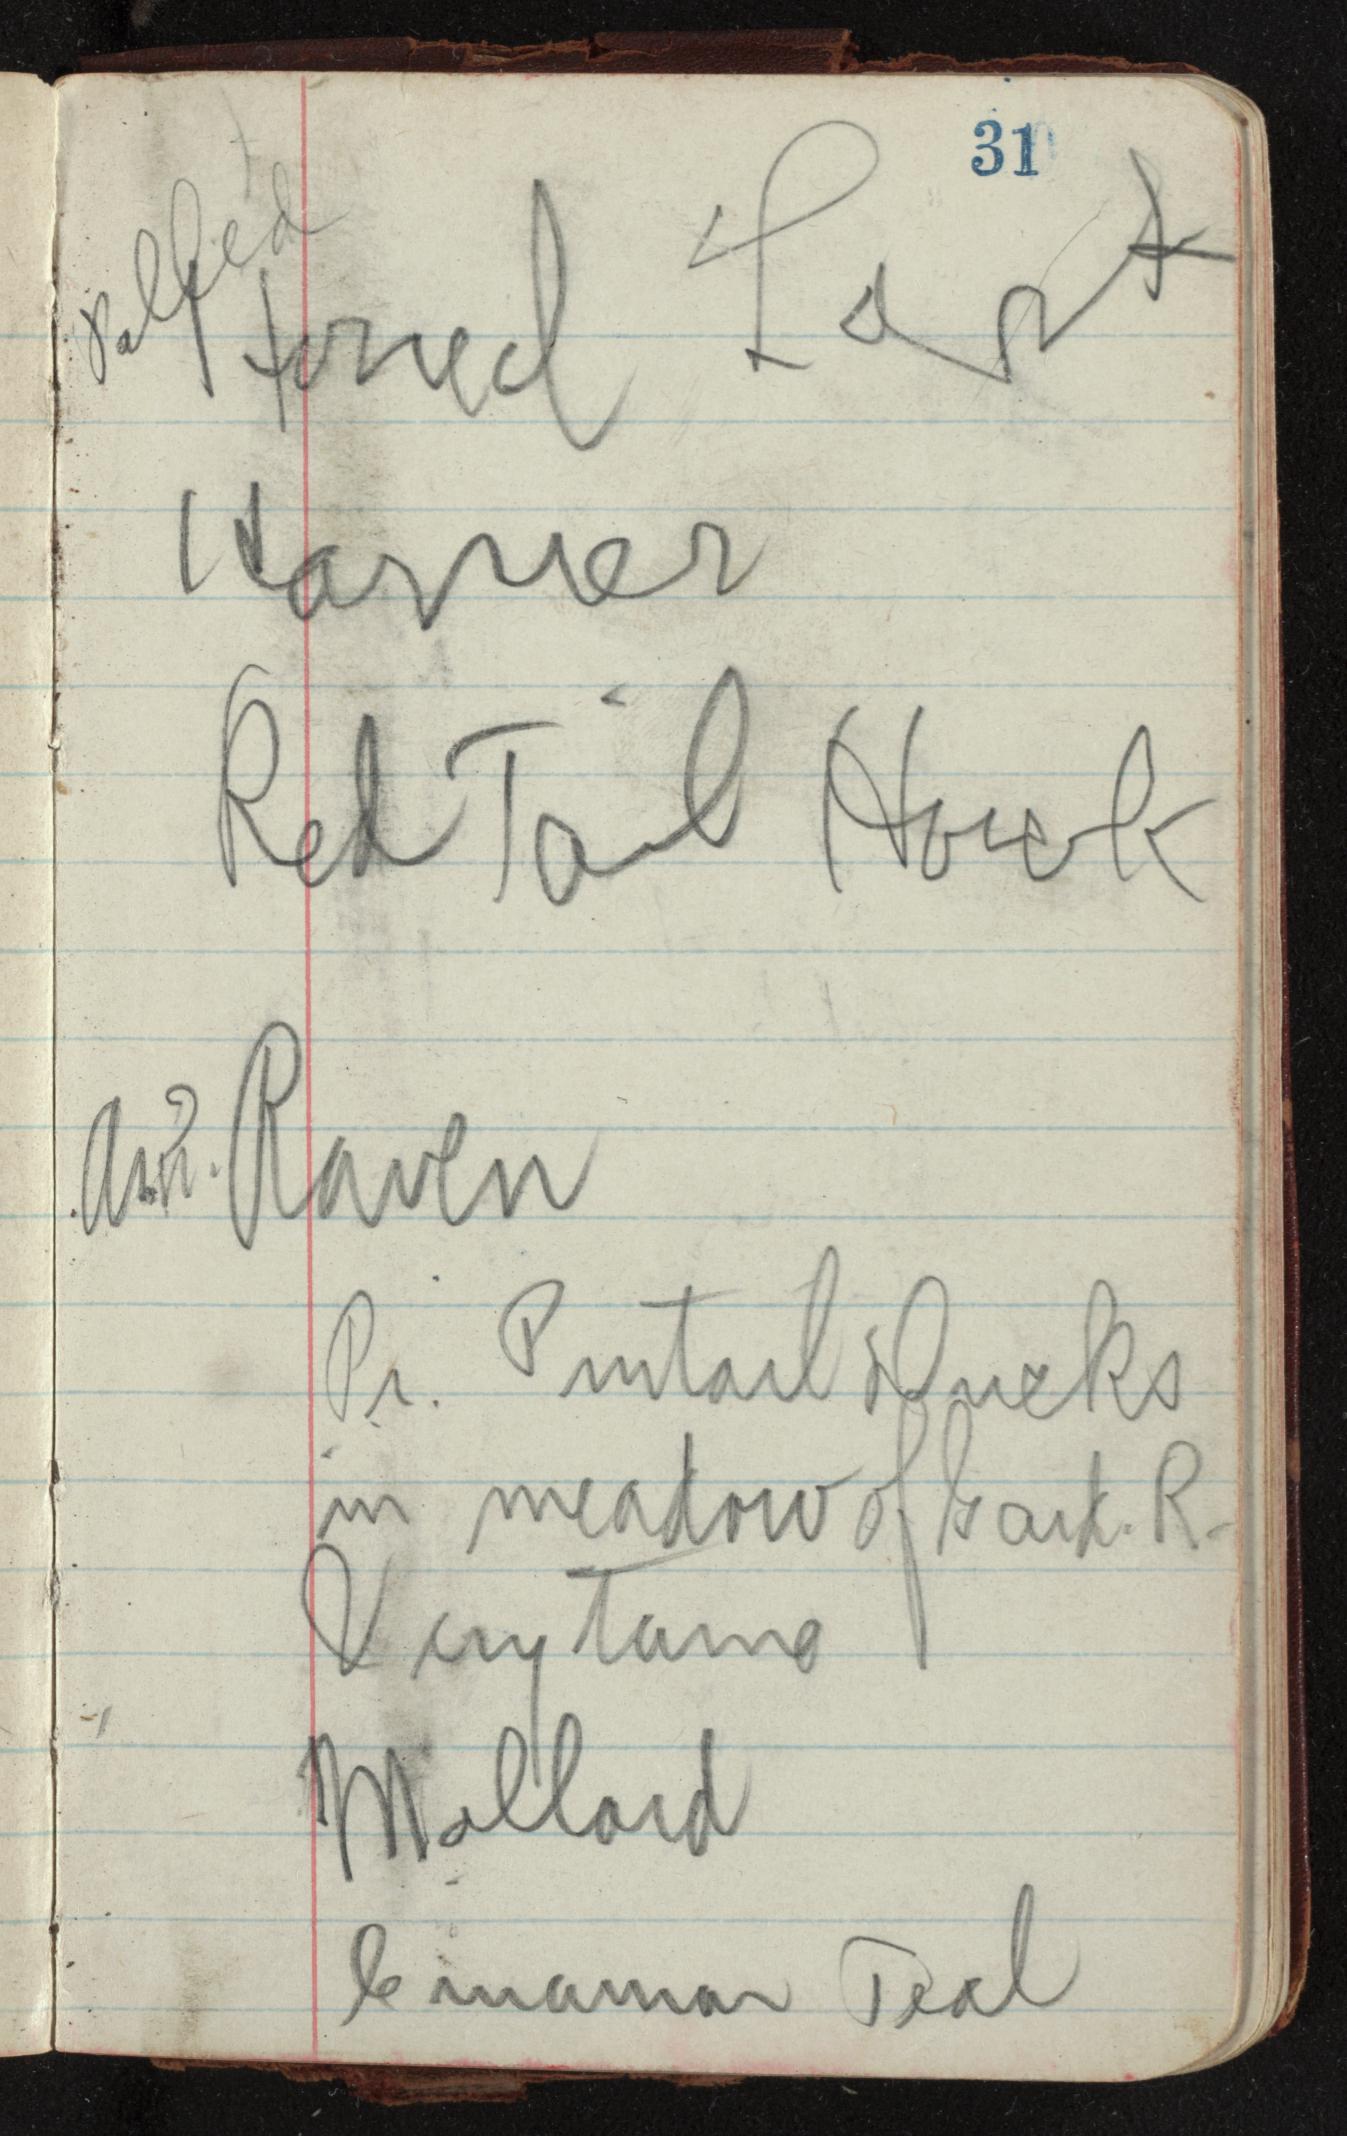 31
Pallid
Horned Lark
Harrier
Red Tail Hawk
Am. Raven
Pr. Pintail Ducks
in meadow of Gard. R.
Very Tame
Mallard
Cinamon Teal